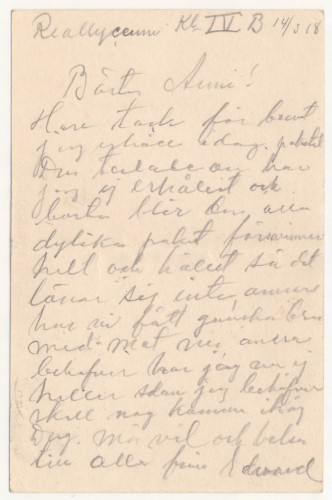 Reallyceum Kl. IV B 14/3 18
Bästa Anni!
Hava tack för brevet
jag erhöll idag. paketet
Du talade om har
jag ej erhållit och
borta blir den, alla
dylika paket försvinner
helt och hållet så det
lönar sig inte, annars
har vi fått ganska bra
med mat nu, andra
behöfver har jag nu ej
heller sdan jag behöfver
skall nog komma ihåg
Dig. Må väl och hälsa
till alla från Edvard